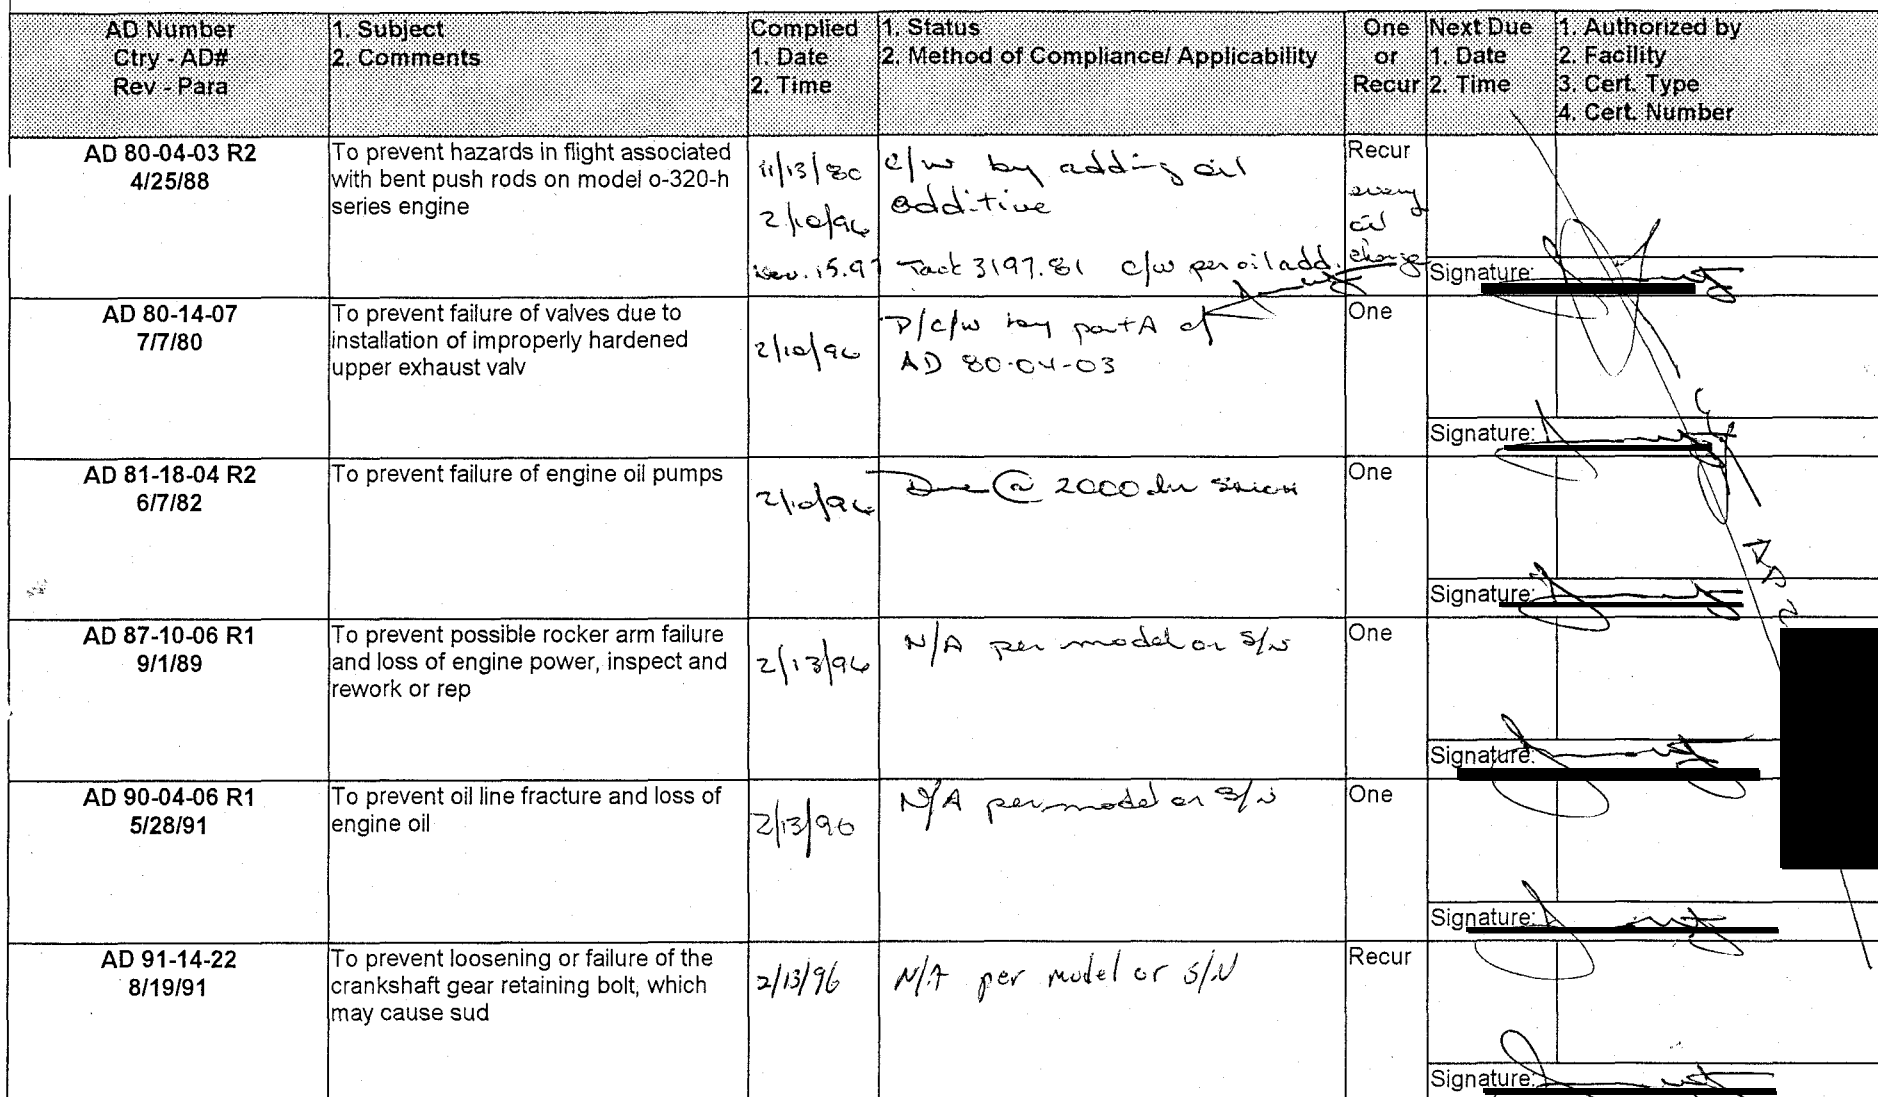 AD Number
Ctry - AD#
Rev - Para
1. Subject
2. Comments
Complied
1. Date
2. Time
1. Status
2. Method of Compliance/ Applicability
One
or
Recur
Next Due
1. Date
2. Time
1. Authorized by
2. Facility
3. Cert. Type
4. Cert. Number
AD 80-04-03 R2
4/25/88
To prevent hazards in flight associated
with bent push rods on model o-320-h
series engine
11/13/80
2/10/96
Nov. 15.97
c/w by adding oil
additive
Tack 3197.81 c/w per oil add.
Recur
every
oil
change
Signature:
AD 80-14-07
7/7/80
To prevent failure of valves due to
installation of improperly hardened
upper exhaust valv
2/10/96
P/c/w by part A of
AD 80-04-03
One
Signature:
AD 81-18-04 R2
6/7/82
To prevent failure of engine oil pumps
2/10/96
Due @ 2000
One
Signature:
AD 87-10-06 R1
9/1/89
To prevent possible rocker arm failure
and loss of engine power, inspect and
rework or rep
2/13/96
N/A per model or S/N
One
Signature:
AD 90-04-06 R1
5/28/91
To prevent oil line fracture and loss of
engine oil
2/13/96
N/A per model or S/N
One
Signature:
AD 91-14-22
8/19/91
To prevent loosening or failure of the
crankshaft gear retaining bolt, which
may cause sud
2/13/96
N/A per model or S/N
Recur
Signature: